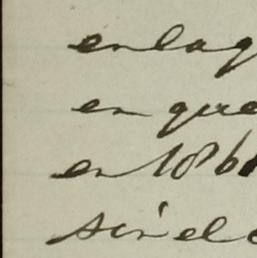 en la q
en que
en 186
sin el c